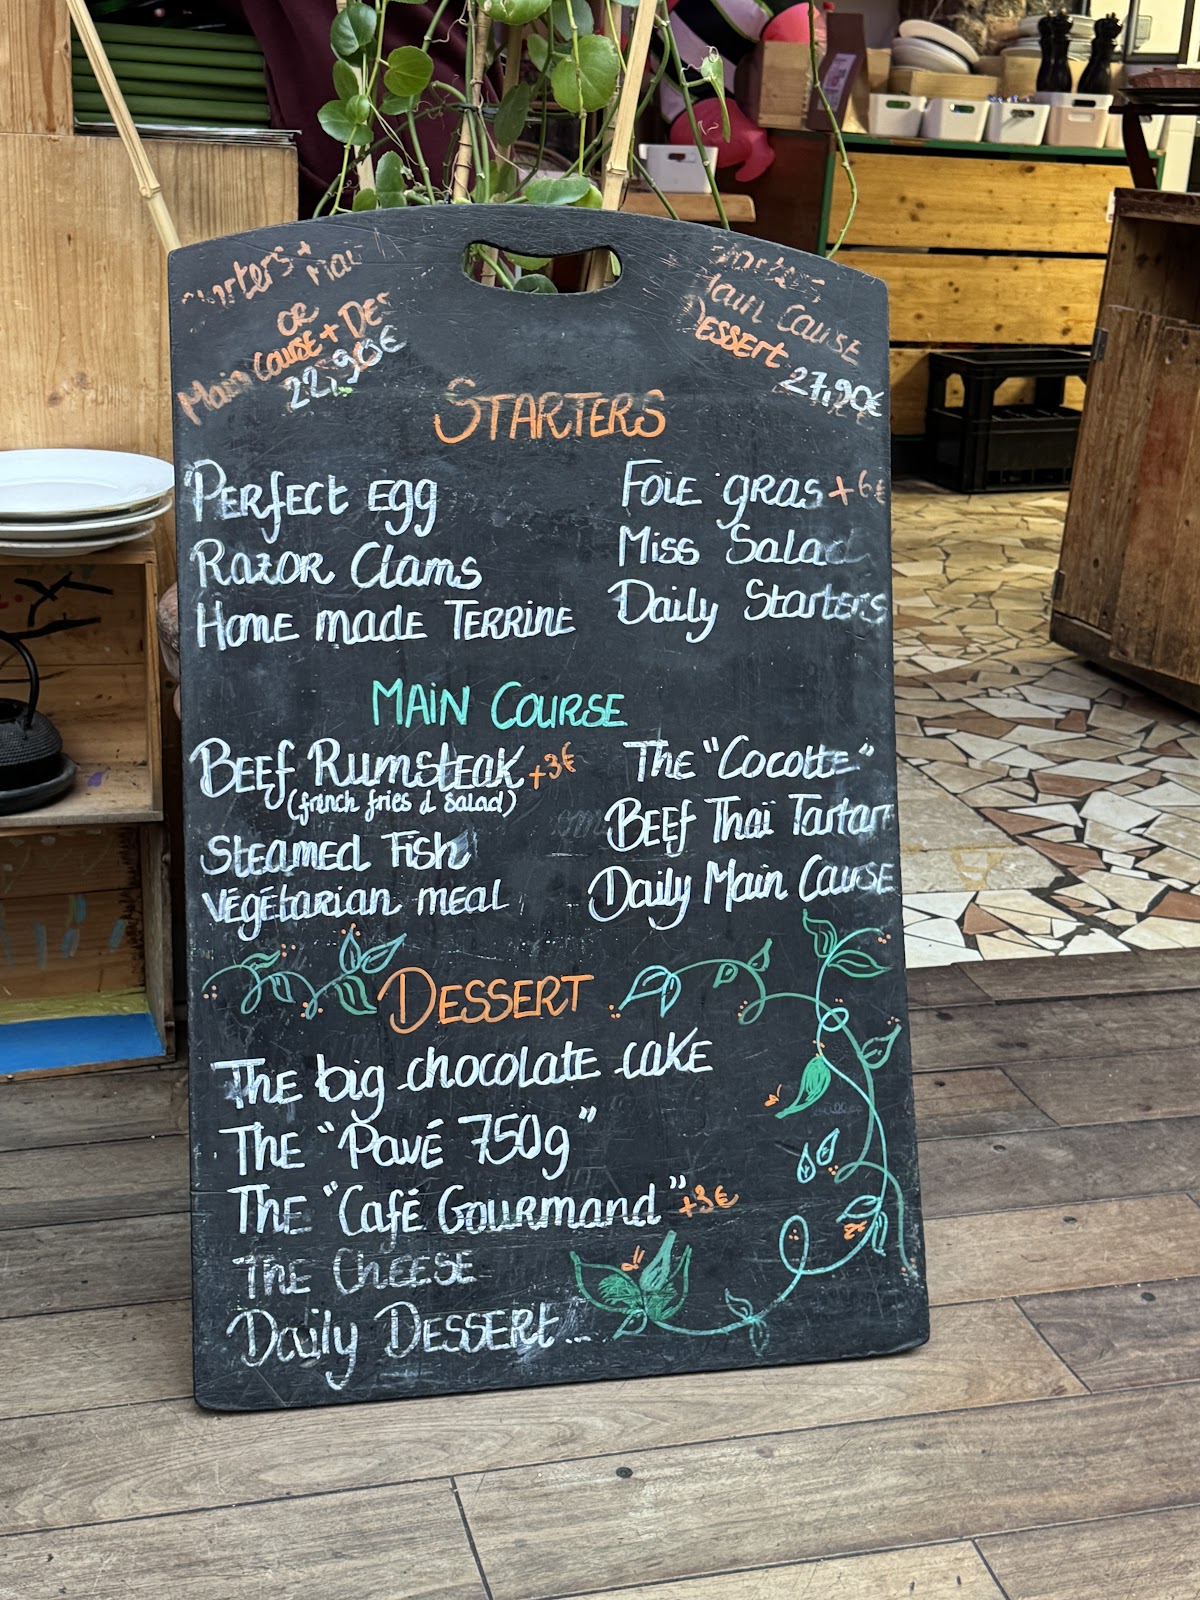 Starters + Mai
OR
Main Course + Des
22,90€
Starters
Main Cause
Dessert 27,90€
STARTERS
Perfect Egg
Razor Clams
Home made Terrine
Foie gras +6€
Miss Salad
Daily Starters
MAIN COURSE
Beef Rumsteak +3€
(french fries & Salad)
Steamed Fish
Végétarian meal
The "Cocotte"
Beef Thaï Tartar
Daily Main Cause
DESSERT
The big chocolate cake
The "Pavé 750g"
The "Café Gourmand" +3€
The Cheese
Daily Dessert...